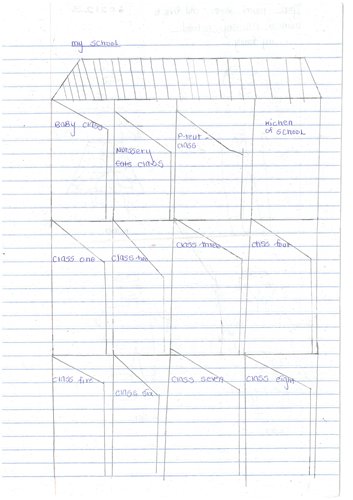 my school
Baby class
Nassery
cats class
class
kichen
of school
class one
class two
class three
class four
class five
class six
class seven
class eight